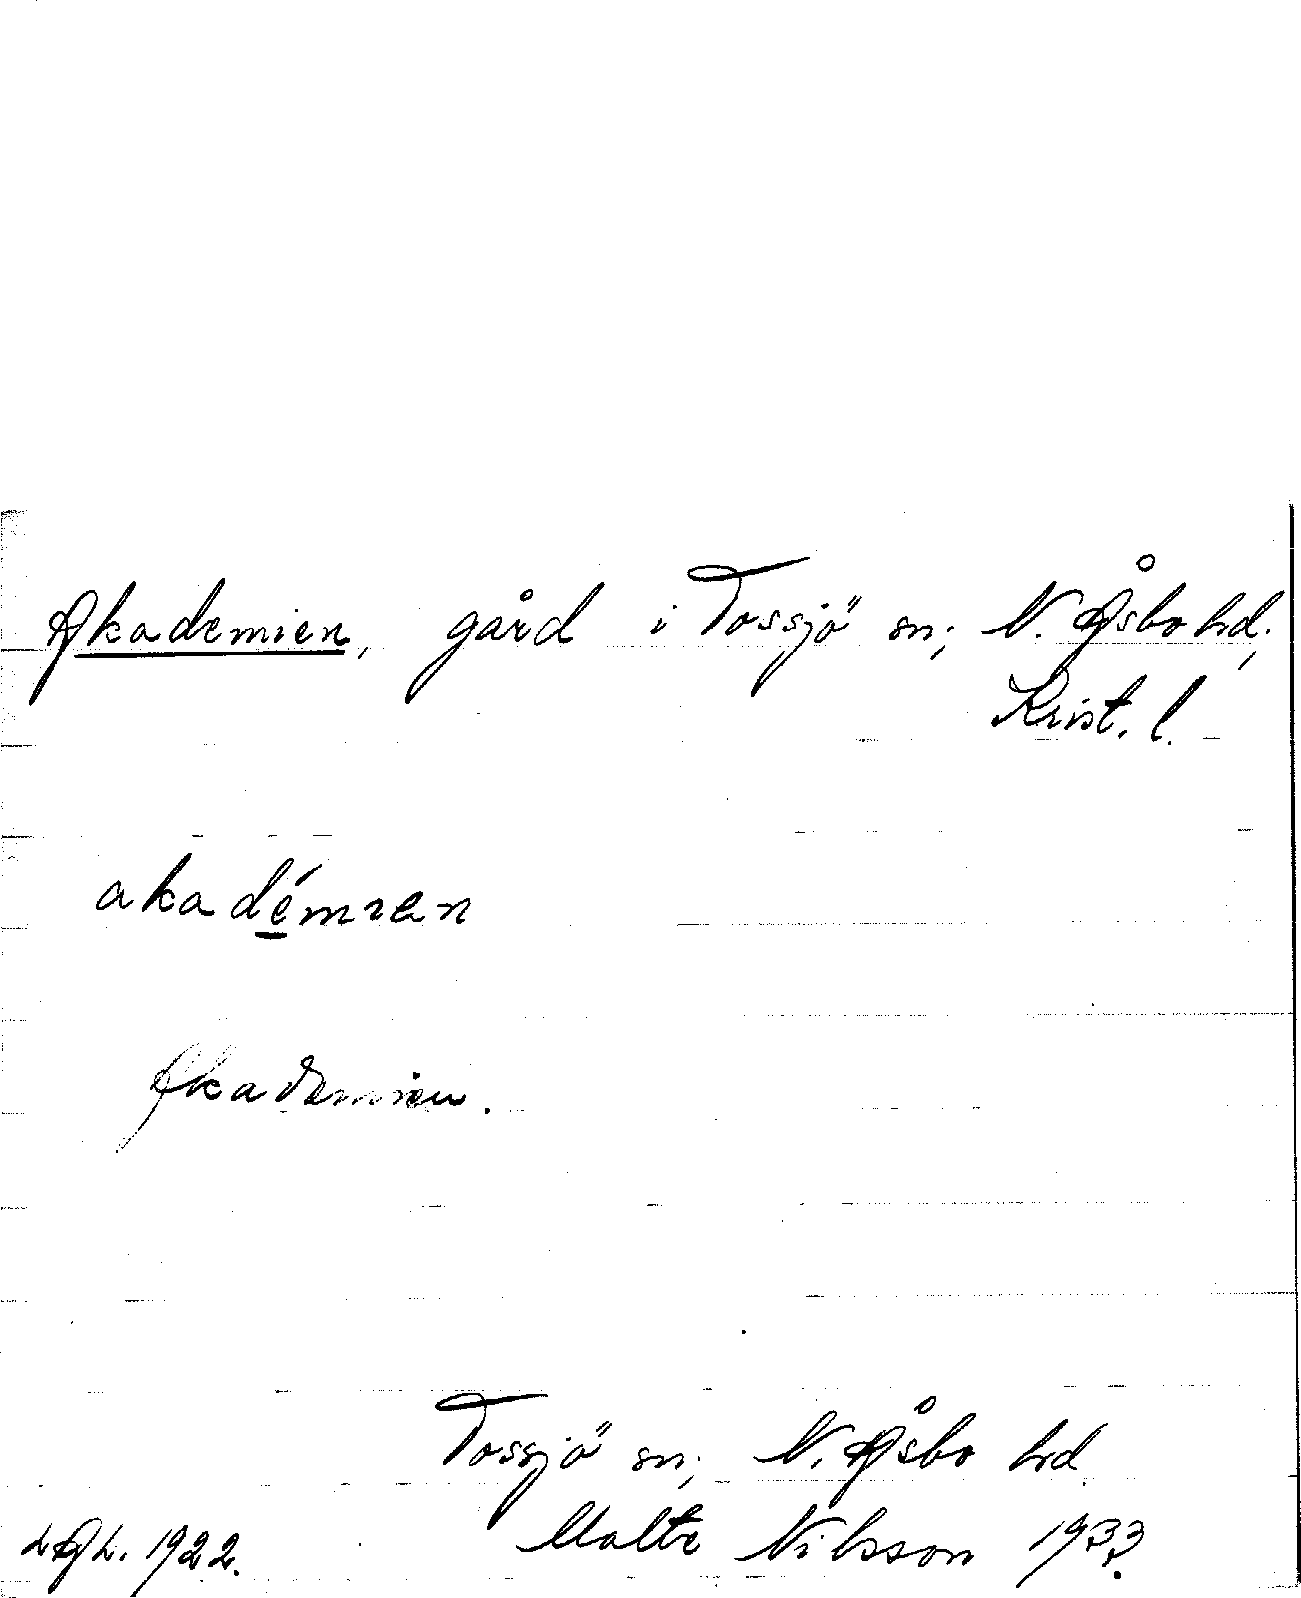 Akademien, gård i Tossjö sn; N. Åsbo hd;
Krist. l.
akadémien
Akademien.
Tossjö sn; N. Åsbo hd
LAL. 1922. Malte Nilsson 1933.